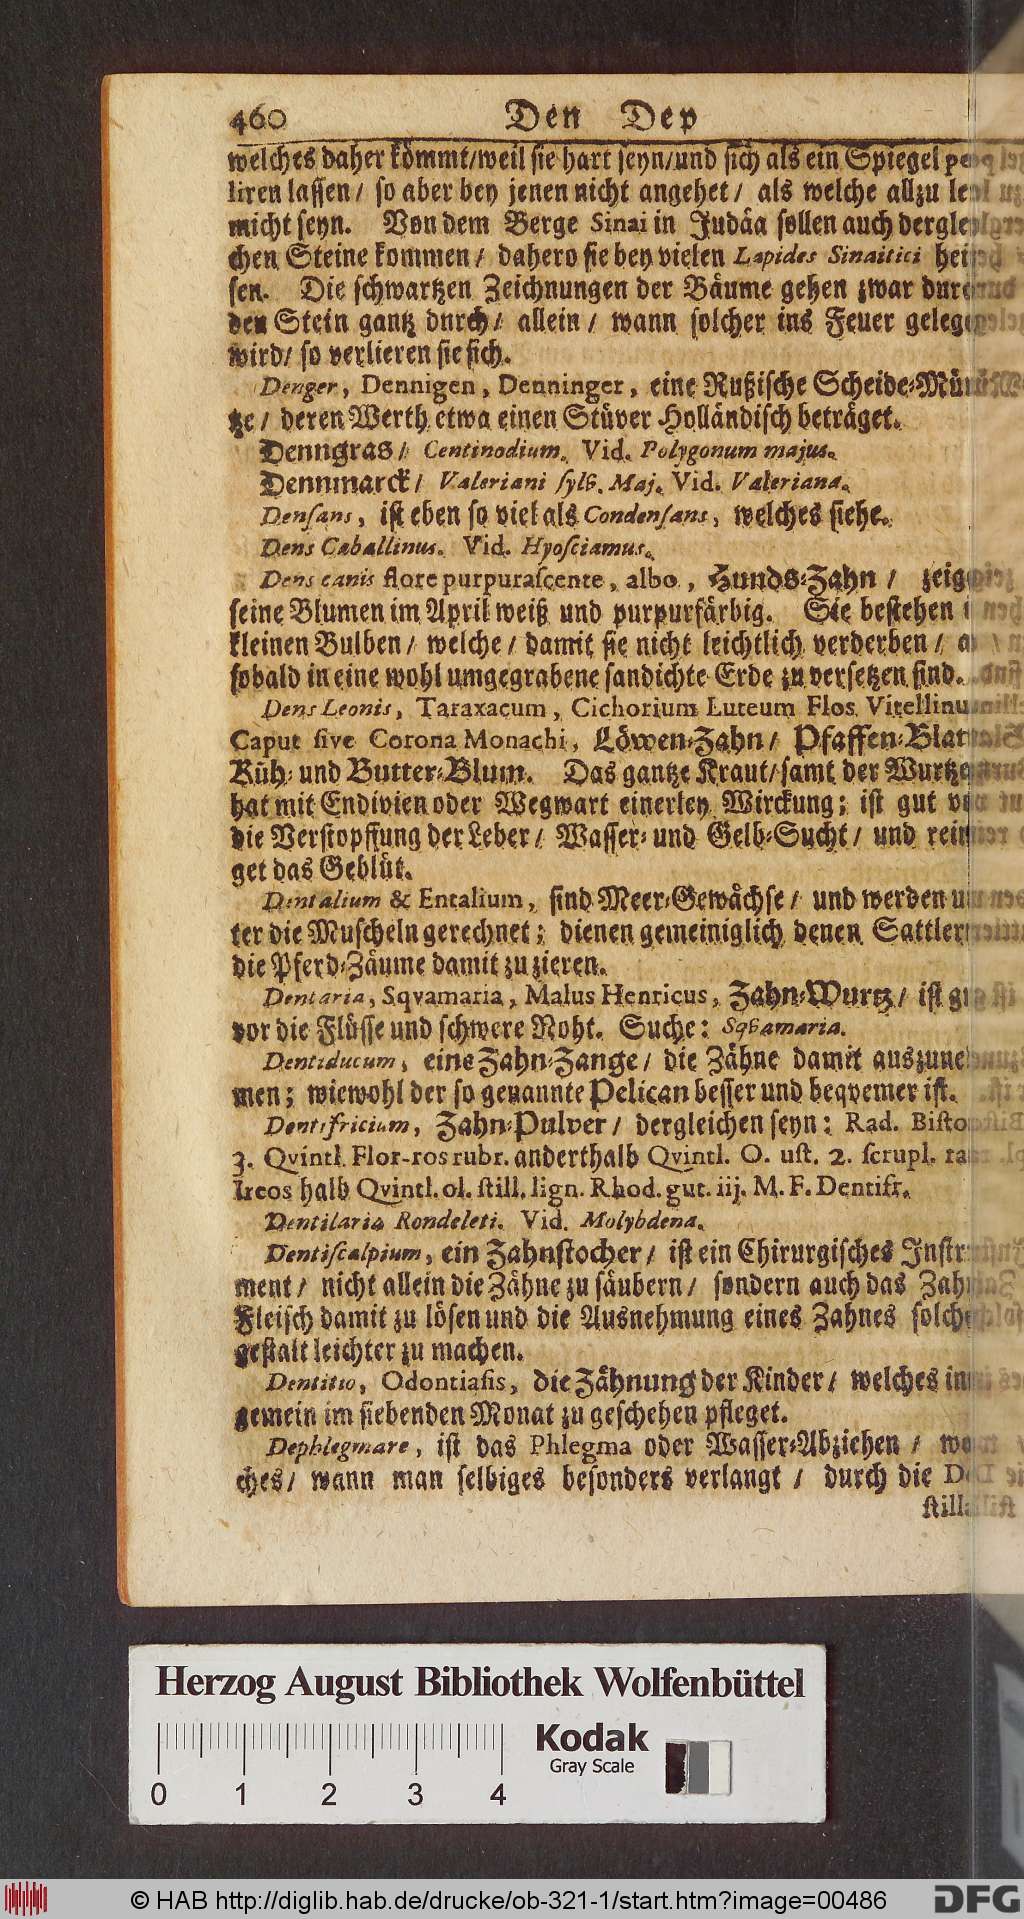 460 Den Dep
welches daher kömmt/weil sie hart seyn/und sich als ein Spiegel
liren lassen/ so aber bey jenen nicht angehet/ als welche allzu
micht seyn. Von dem Berge Sinai in Judåa sollen auch
chen Steine kommen/ dahero sie bey vielen Lapides Sinaitici
sen. Die schwartzen Zeichnungen der Båume gehen zwar
den Stein gantz durch/ allein/ wann solcher ins Feuer
wird/ so verlieren sie sich.
Denger, Dennigen, Denninger, eine Rußische Scheide-Mün
tze/ deren Werth etwa einen Stüver Holländisch beträget.
Denngras/ Centinodium. Vid. Polygonum majus.
Dennmarck/ Valeriani sylv. Maj. Vid. Valeriana.
Densans, ist eben so viel als Condensans, welches siehe.
Dens Caballinus. Vid. Hyosciamus.
Dens canis flore purpurascente, albo, Hunds-Zahn/
seine Blumen im April weiß und purpurfärbig. Sie bestehen
kleinen Bulben/ welche/ damit sie nicht leichtlich verderben/
sobald in eine wohl umgegrabene sandichte Erde zu versetzen sind.
Dens Leonis, Taraxacum, Cichorium Luteum Flos Vitellinus
Caput sive Corona Monachi, Löwen-Zahn/ Pfaffen-Blat
Küh- und Butter-Blum. Das gantze Kraut/samt der
hat mit Endivien oder Wegwart einerley Wirckung; ist gut
die Verstopffung der Leber/ Wasser- und Gelb-Sucht/ und
get das Geblüt.
Dentalium & Entalium, sind Meer-Gewächse/ und werden un
ter die Muscheln gerechnet; dienen gemeiniglich denen Sattlern
die Pferd-Zäume damit zu zieren.
Dentaria, Sqvamaria, Malus Henricus, Zahn-Wurtz/ ist
vor die Flüsse und schwere Noht. Suche: Sqvamaria.
Dentiducum, eine Zahn-Zange/ die Zähne damit auszuneh
men; wiewohl der so genannte Pelican besser und beqvemer ist.
Dentifricium, Zahn-Pulver/ dergleichen seyn: Rad.
3. Qvintl. Flor-ros rubr. anderthalb Qvintl. O. ust. 2. scrupl.
Ireos halb Qvintl. ol. still. lign. Rhod. gut. iij. M. F. Dentifr.
Dentilaria Rondeleti. Vid. Molybdena.
Dentiscalpium, ein Zahnstocher/ ist ein Chirurgisches Instru
ment/ nicht allein die Zähne zu säubern/ sondern auch das Zahn
Fleisch damit zu lösen und die Ausnehmung eines Zahnes
gestalt leichter zu machen.
Dentitio, Odontiasis, die Zähnung der Kinder/ welches
gemein im siebenden Monat zu geschehen pfleget.
Dephlegmare, ist das Phlegma oder Wasser-Abziehen/
ches/ wann man selbiges besonders verlangt/ durch die
Herzog August Bibliothek Wolfenbüttel
Kodak
Gray Scale
0 1 2 3 4
© HAB http://diglib.hab.de/drucke/ob-321-1/start.htm?image=00486
DFG